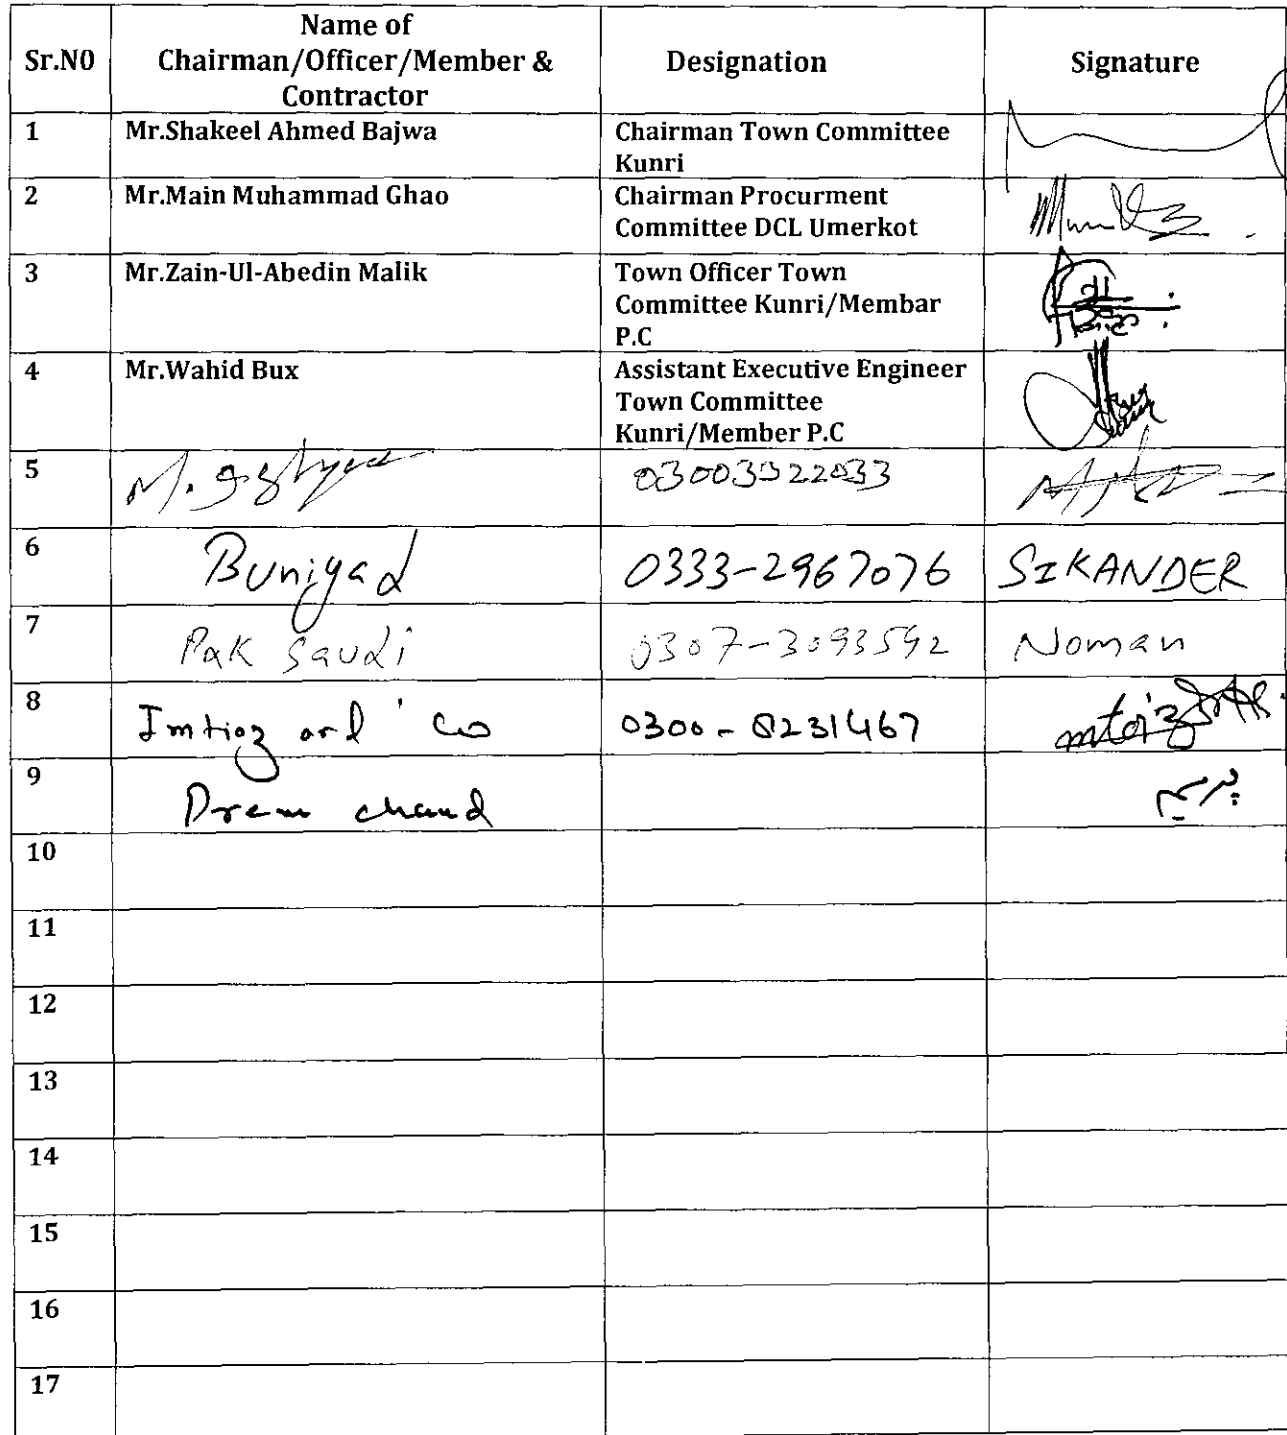 Sr.N0
Name of
Chairman/Officer/Member &
Contractor
Designation
Signature
1
Mr.Shakeel Ahmed Bajwa
Chairman Town Committee
Kunri
2
Mr.Main Muhammad Ghao
Chairman Procurment
Committee DCL Umerkot
3
Mr.Zain-Ul-Abedin Malik
Town Officer Town
Committee Kunri/Membar
P.C
4
Mr.Wahid Bux
Assistant Executive Engineer
Town Committee
Kunri/Member P.C
5
M.
03003322033
6
Buniyad
0333-2967076
SIKANDER
7
Pak Saudi
0307-3093592
Noman
8
Imtiaz and Co
0300-8231467
9
Prem chand
پریم
10
11
12
13
14
15
16
17